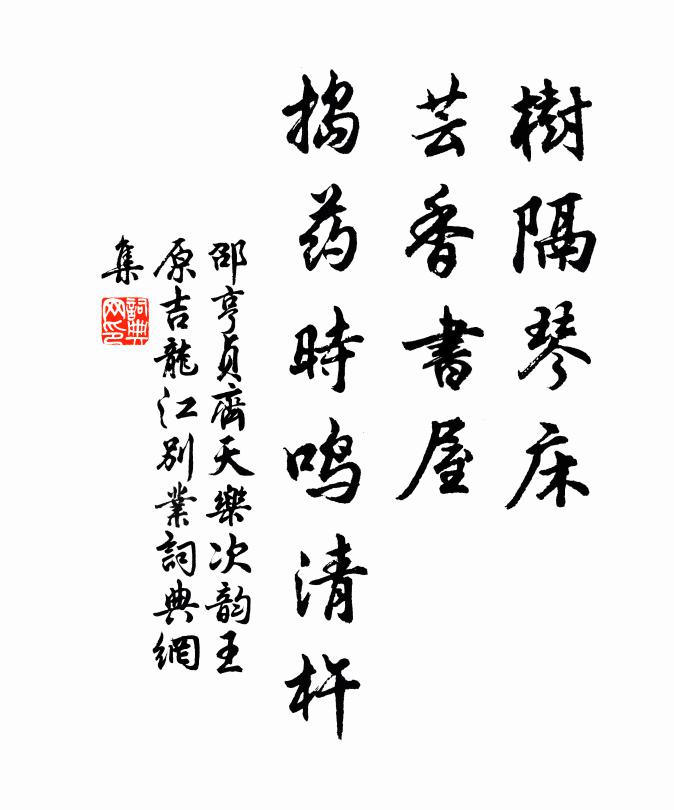 樹隔琴床
芸香書屋
搗药時鸣清杵
邵亨貞齊天樂次韵王
原吉龍江别業詞典網
集
詞典
网印